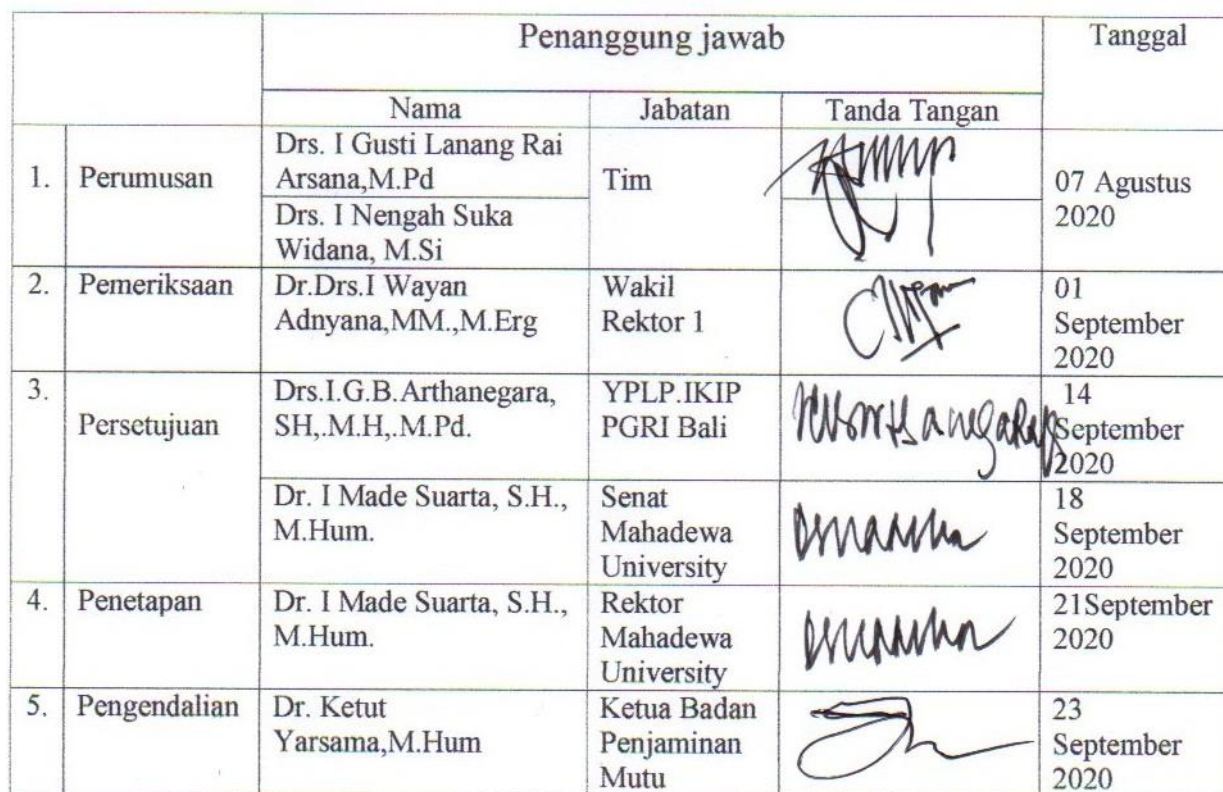 Penanggung jawab Tanggal
Nama Jabatan Tanda Tangan
1. Perumusan Drs. I Gusti Lanang Rai
Arsana,M.Pd Tim 07 Agustus
2020
Drs. I Nengah Suka
Widana, M.Si
2. Pemeriksaan Dr.Drs.I Wayan
Adnyana,MM.,M.Erg Wakil
Rektor 1 01
September
2020
3. Persetujuan Drs.I.G.B.Arthanegara,
SH,.M.H,.M.Pd. YPLP.IKIP
PGRI Bali 14
September
2020
Dr. I Made Suarta, S.H.,
M.Hum. Senat
Mahadewa
University 18
September
2020
4. Penetapan Dr. I Made Suarta, S.H.,
M.Hum. Rektor
Mahadewa
University 21September
2020
5. Pengendalian Dr. Ketut
Yarsama,M.Hum Ketua Badan
Penjaminan
Mutu 23
September
2020